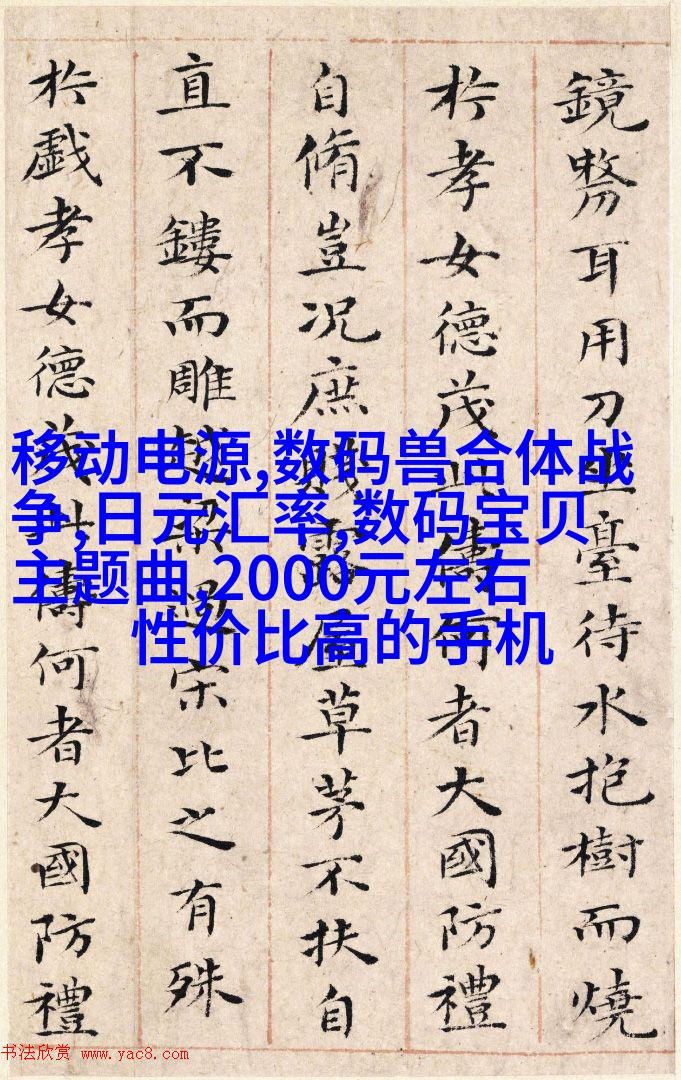 鏡剺耳用刀坐臺待水抱樹而燒
於孝女德茂此儔何者大國防禮
自脩豈况庶賤露屋草茅不扶自
直不鏤而雕越梁過宋比之有殊
於戲孝女德茂此儔何者大國防禮
移动电源,数码兽合体战
争,日元汇率,数码宝贝
主题曲,2000元左右
性价比高的手机
书法欣赏 www.yac8.com